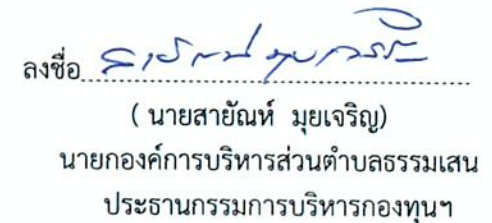 ลงชื่อ
( นายสายัณห์ มุยเจริญ)
นายกองค์การบริหารส่วนตำบลธรรมเสน
ประธานกรรมการบริหารกองทุนฯ